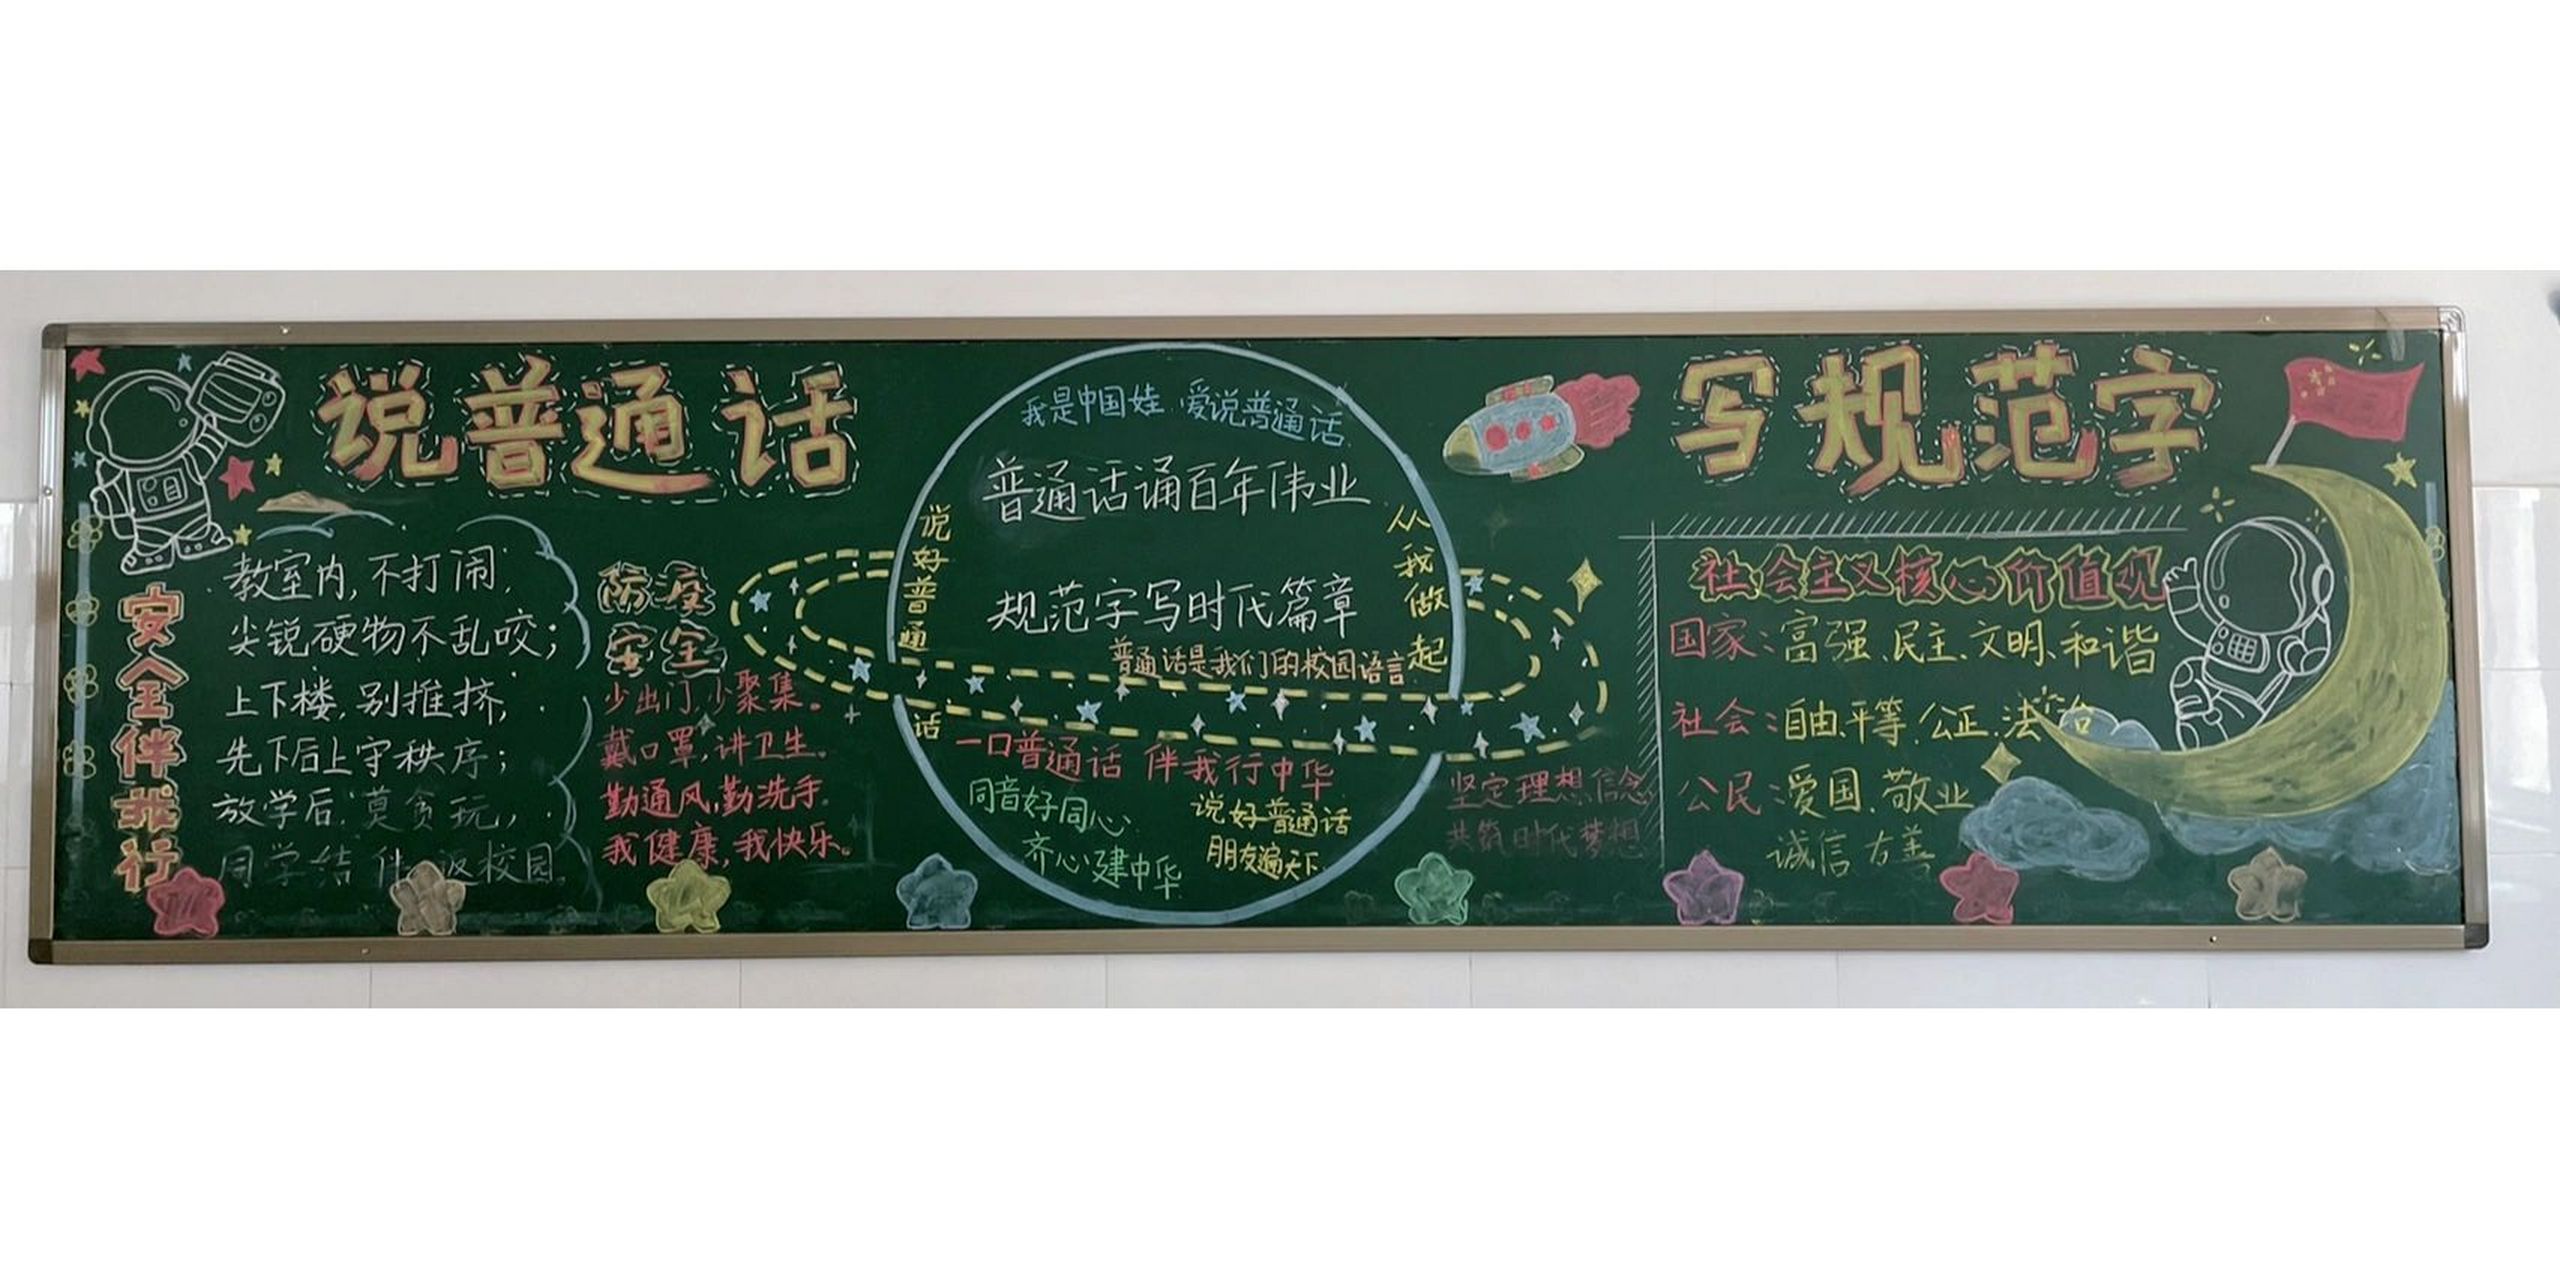 说普通话
写规范字
安全伴我行
教室内,不打闹,
尖锐硬物不乱咬;
上下楼,别推挤,
先下后上守秩序;
放学后,莫贪玩,
同学结伴返校园。
防疫
安全
少出门,少聚集。
戴口罩,讲卫生。
勤通风,勤洗手。
我健康,我快乐。
我是中国娃 爱说普通话
普通话诵百年伟业
规范字写时代篇章
说好普通话
从我做起
普通话是我们的校园语言
一口普通话 伴我行中华
同音好同心
齐心建中华
说好普通话
朋友遍天下
坚定理想信念
共筑时代梦想
社会主义核心价值观
国家:富强、民主、文明、和谐
社会:自由、平等、公正、法治
公民:爱国、敬业
诚信 友善